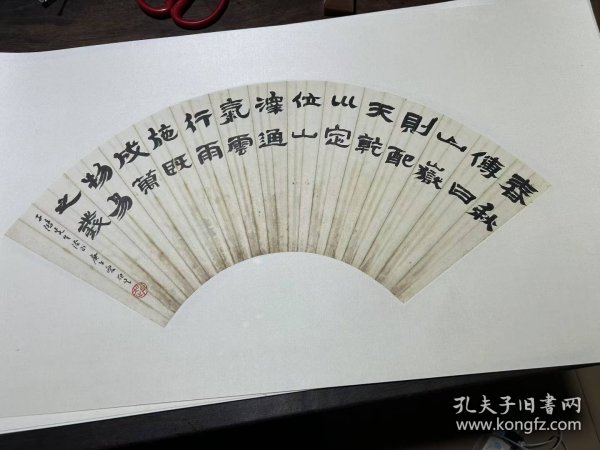 春秋
傳曰
山嶽
則配
天乾
巛定
位山
澤通
氣雲
行雨
施既
成萬
物易
之義
先生法正
孔夫子旧书网
www.kongfz.com